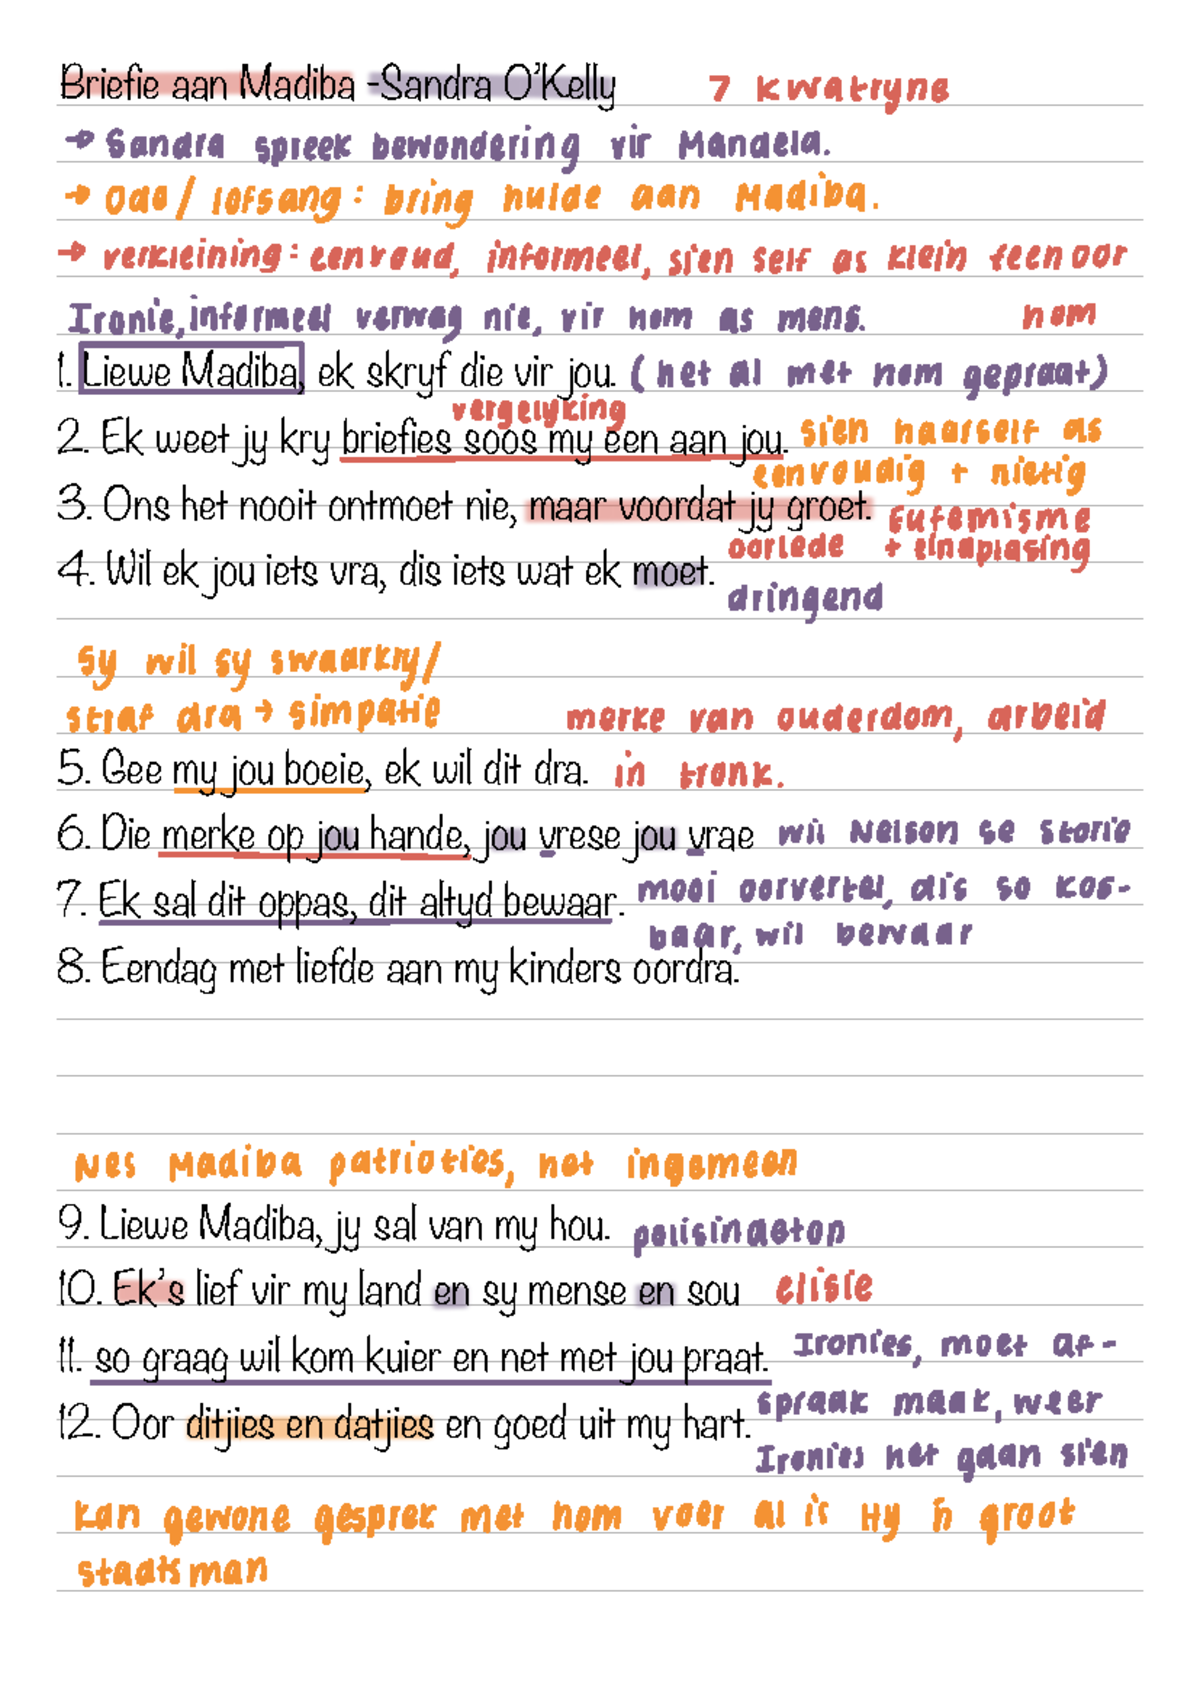 Briefie aan Madiba -Sandra O'Kelly 7 kwatryne
→ Sandra spreek bewondering vir Mandela.
→ Ode / lofsang: bring hulde aan Madiba.
→ verkleining: eenvoud, informeel, sien self as klein teenoor
Ironie, informeel verwag nie, vir hom as mens. hom
1. Liewe Madiba, ek skryf die vir jou. (het al met hom gepraat)
vergelyking
2. Ek weet jy kry briefies soos my een aan jou. sien haarself as
eenvoudig + nietig
3. Ons het nooit ontmoet nie, maar voordat jy groet. Eufemisme
oorlede + eindplasing
4. Wil ek jou iets vra, dis iets wat ek moet.
dringend
Sy wil sy swaarkry/
straf dra → simpatie merke van ouderdom, arbeid
5. Gee my jou boeie, ek wil dit dra. in tronk.
6. Die merke op jou hande, jou vrese jou vrae wil Nelson se storie
7. Ek sal dit oppas, dit altyd bewaar. mooi oorvertel, dis so kos-
baar, wil bewaar
8. Eendag met liefde aan my kinders oordra.
Nes Madiba patrioties, het ingemeen
9. Liewe Madiba, jy sal van my hou. polisindeton
10. Ek's lief vir my land en sy mense en sou elisie
11. so graag wil kom kuier en net met jou praat. Ironies, moet af-
spraak maak, weer
12. Oor ditjies en datjies en goed uit my hart.
Ironies het gaan sien
kan gewone gesprek met hom voer al is Hy 'n groot
staatsman